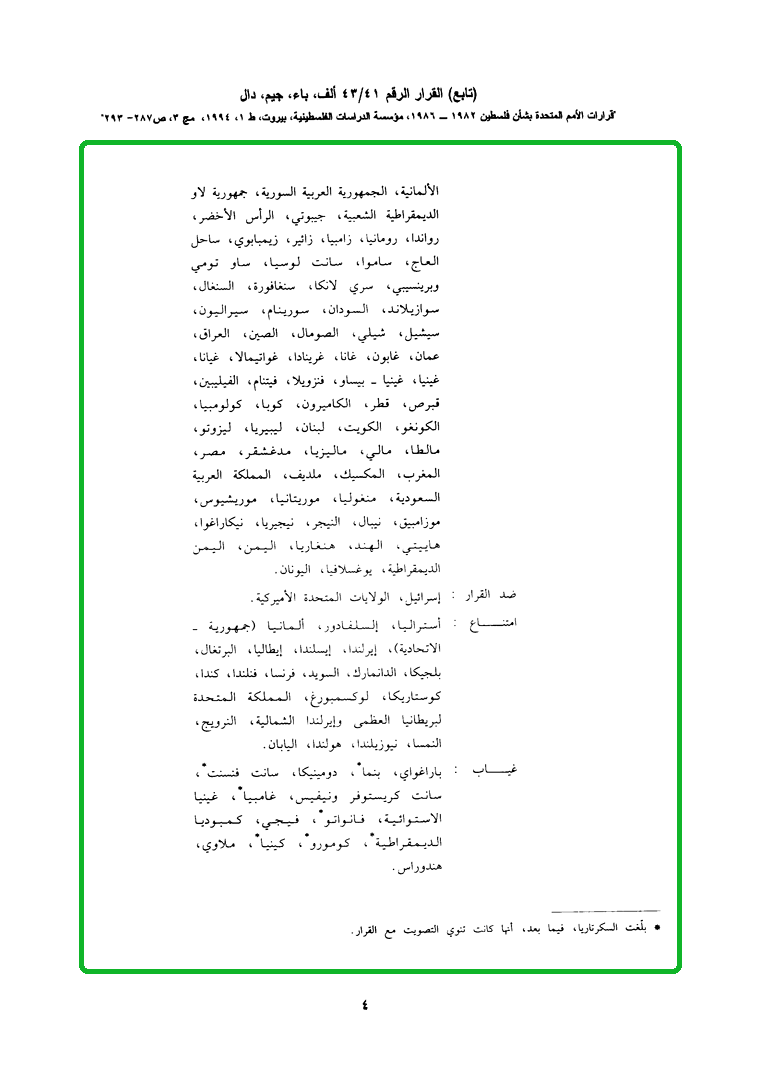 (تابع) القرار الرقم ٤٣/٤١ ألف، باء، جيم، دال
"قرارات الأمم المتحدة بشأن فلسطين ١٩٨٢ ــ ١٩٨٦، مؤسسة الدراسات الفلسطينية، بيروت، ط ١، ١٩٩٤، مج ٣، ص٢٨٧- ٢٩٣"
الألمانية، الجمهورية العربية السورية، جمهورية لاو
الديمقراطية الشعبية، جيبوتي، الرأس الأخضر،
رواندا، رومانيا، زامبيا، زائير، زيمبابوي، ساحل
العاج، ساموا، سانت لوسيا، ساو تومي
وبرينسيبي، سري لانكا، سنغافورة، السنغال،
سوازيلاند، السودان، سورينام، سيراليون،
سيشيل، شيلي، الصومال، الصين، العراق،
عمان، غابون، غانا، غرينادا، غواتيمالا، غيانا،
غينيا، غينيا ـ بيساو، فنزويلا، فيتنام، الفيليبين،
قبرص، قطر، الكاميرون، كوبا، كولومبيا،
الكونغو، الكويت، لبنان، ليبيريا، ليزوتو،
مالطا، مالي، ماليزيا، مدغشقر، مصر،
المغرب، المكسيك، ملديف، المملكة العربية
السعودية، منغوليا، موريتانيا، موريشيوس،
موزامبيق، نيبال، النيجر، نيجيريا، نيكاراغوا،
هاييتي، الهند، هنغاريا، اليمن، اليمن
الديمقراطية، يوغسلافيا، اليونان.
ضد القرار : إسرائيل، الولايات المتحدة الأميركية.
امتنـــــاع : أستراليا، إلسلفادور، ألمانيا (جمهورية ـ
الاتحادية)، إيرلندا، إيسلندا، إيطاليا، البرتغال،
بلجيكا، الدانمارك، السويد، فرنسا، فنلندا، كندا،
كوستاريكا، لوكسمبورغ، المملكة المتحدة
لبريطانيا العظمى وإيرلندا الشمالية، النرويج،
النمسا، نيوزيلندا، هولندا، اليابان.
غيـــــاب : باراغواي، بنما*، دومينيكا، سانت فنسنت*،
سانت كريستوفر ونيفيس، غامبيا*، غينيا
الاستوائية، فانواتو*، فيجي، كمبوديا
الديمقراطية*، كومورو*، كينيا*، ملاوي،
هندوراس.
* بلّغت السكرتاريا، فيما بعد، أنها كانت تنوي التصويت مع القرار.
٤